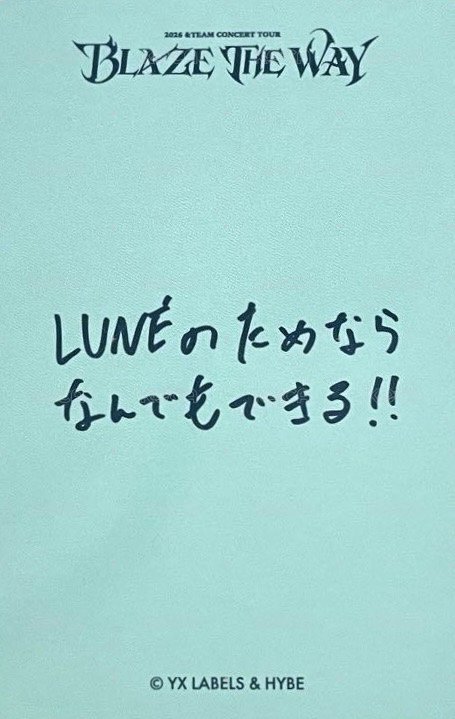 2026 &TEAM CONCERT TOUR
BLAZE THE WAY
LUNÉのためなら
なんでもできる!!
© YX LABELS & HYBE